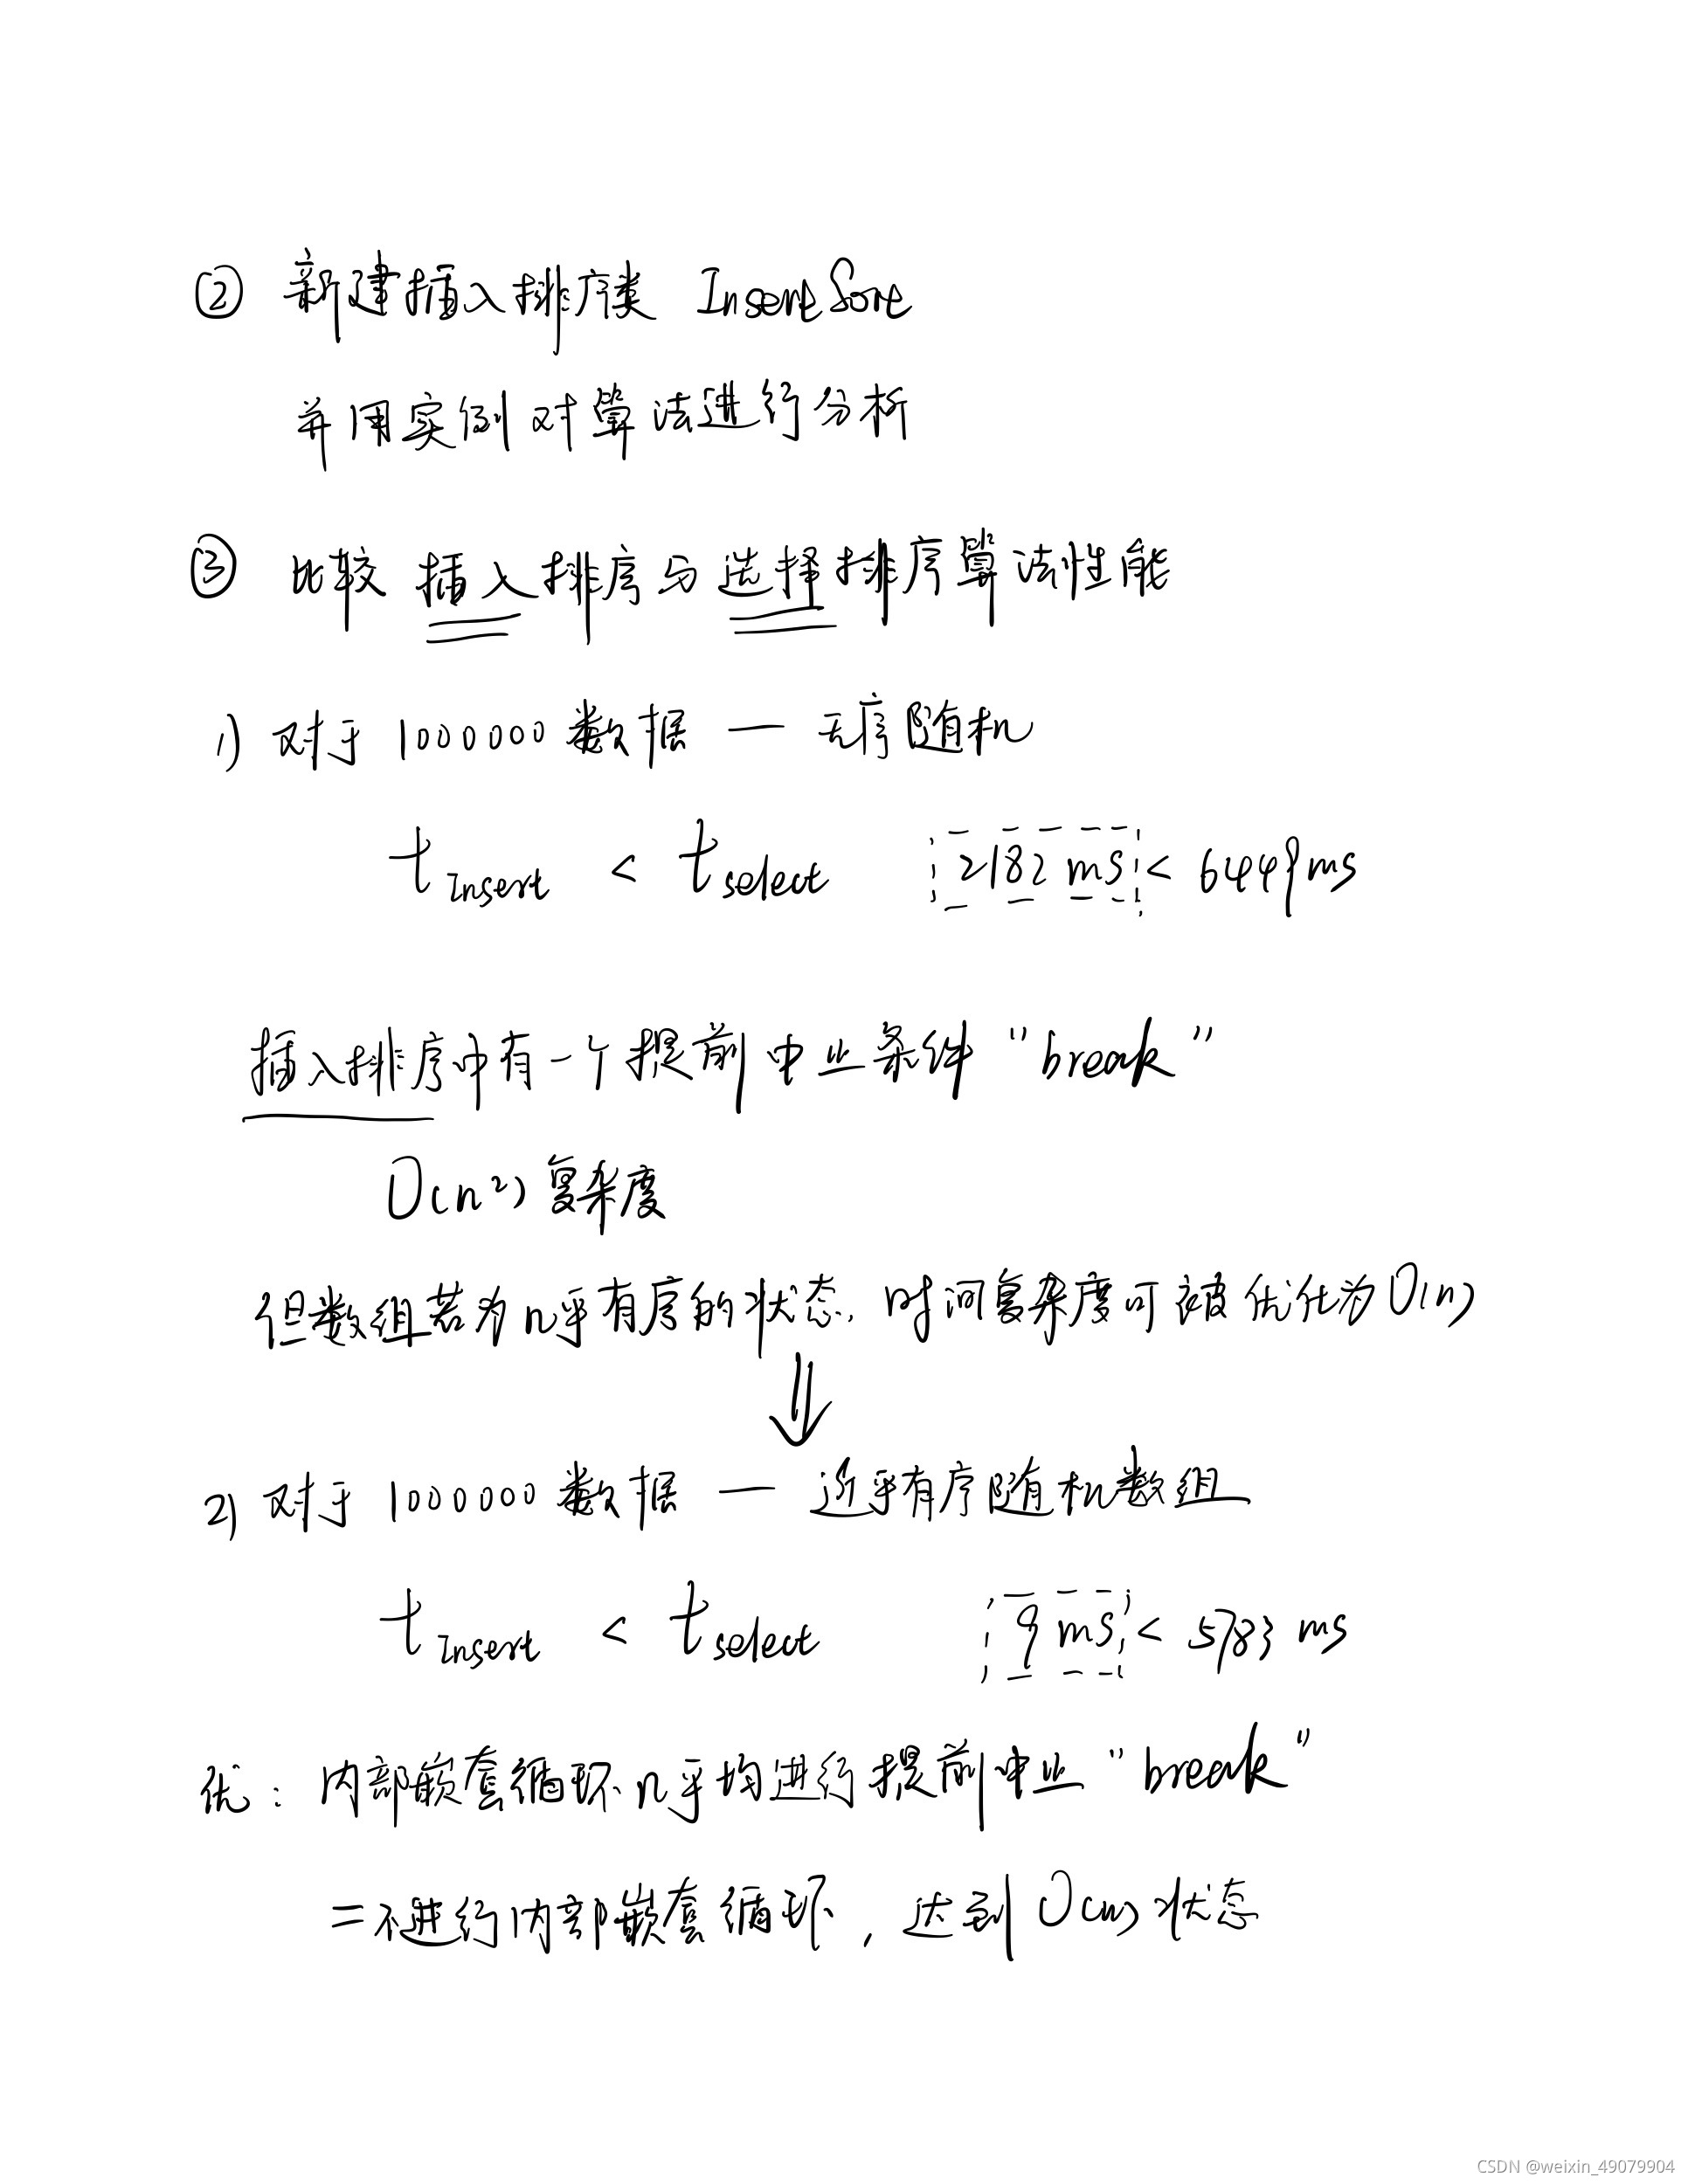 ② 新建插入排序类 InsertSort
并用实例对算法进行分析
③ 比较插入排序与选择排序算法性能
1) 对于1000000数据 — 无序随机
tInsert < tselect 2182 ms < 6449 ms
插入排序中有一个提前中止条件 "break"
O(n²) 复杂度
但数组若为几乎有序的状态, 时间复杂度可被优化为O(n)
⇓
2) 对于1000000数据 — 近乎有序随机数组
tInsert < tselect 9 ms < 5783 ms
优: 内部嵌套循环几乎均进行提前中止 "break"
= 不进行内部嵌套循环, 达到O(n)状态
CSDN @weixin_49079904